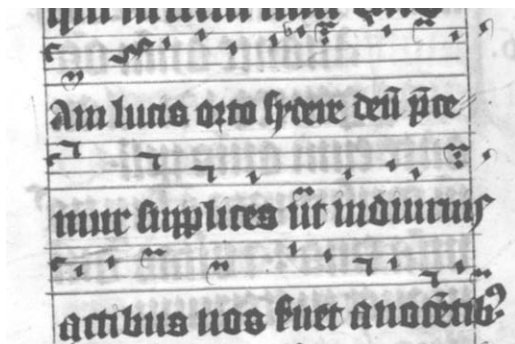 Am lucis orto sydere deū p̄ce
mur supplices ūt indiurnis
actibus nos s̄uet anocētib⁹